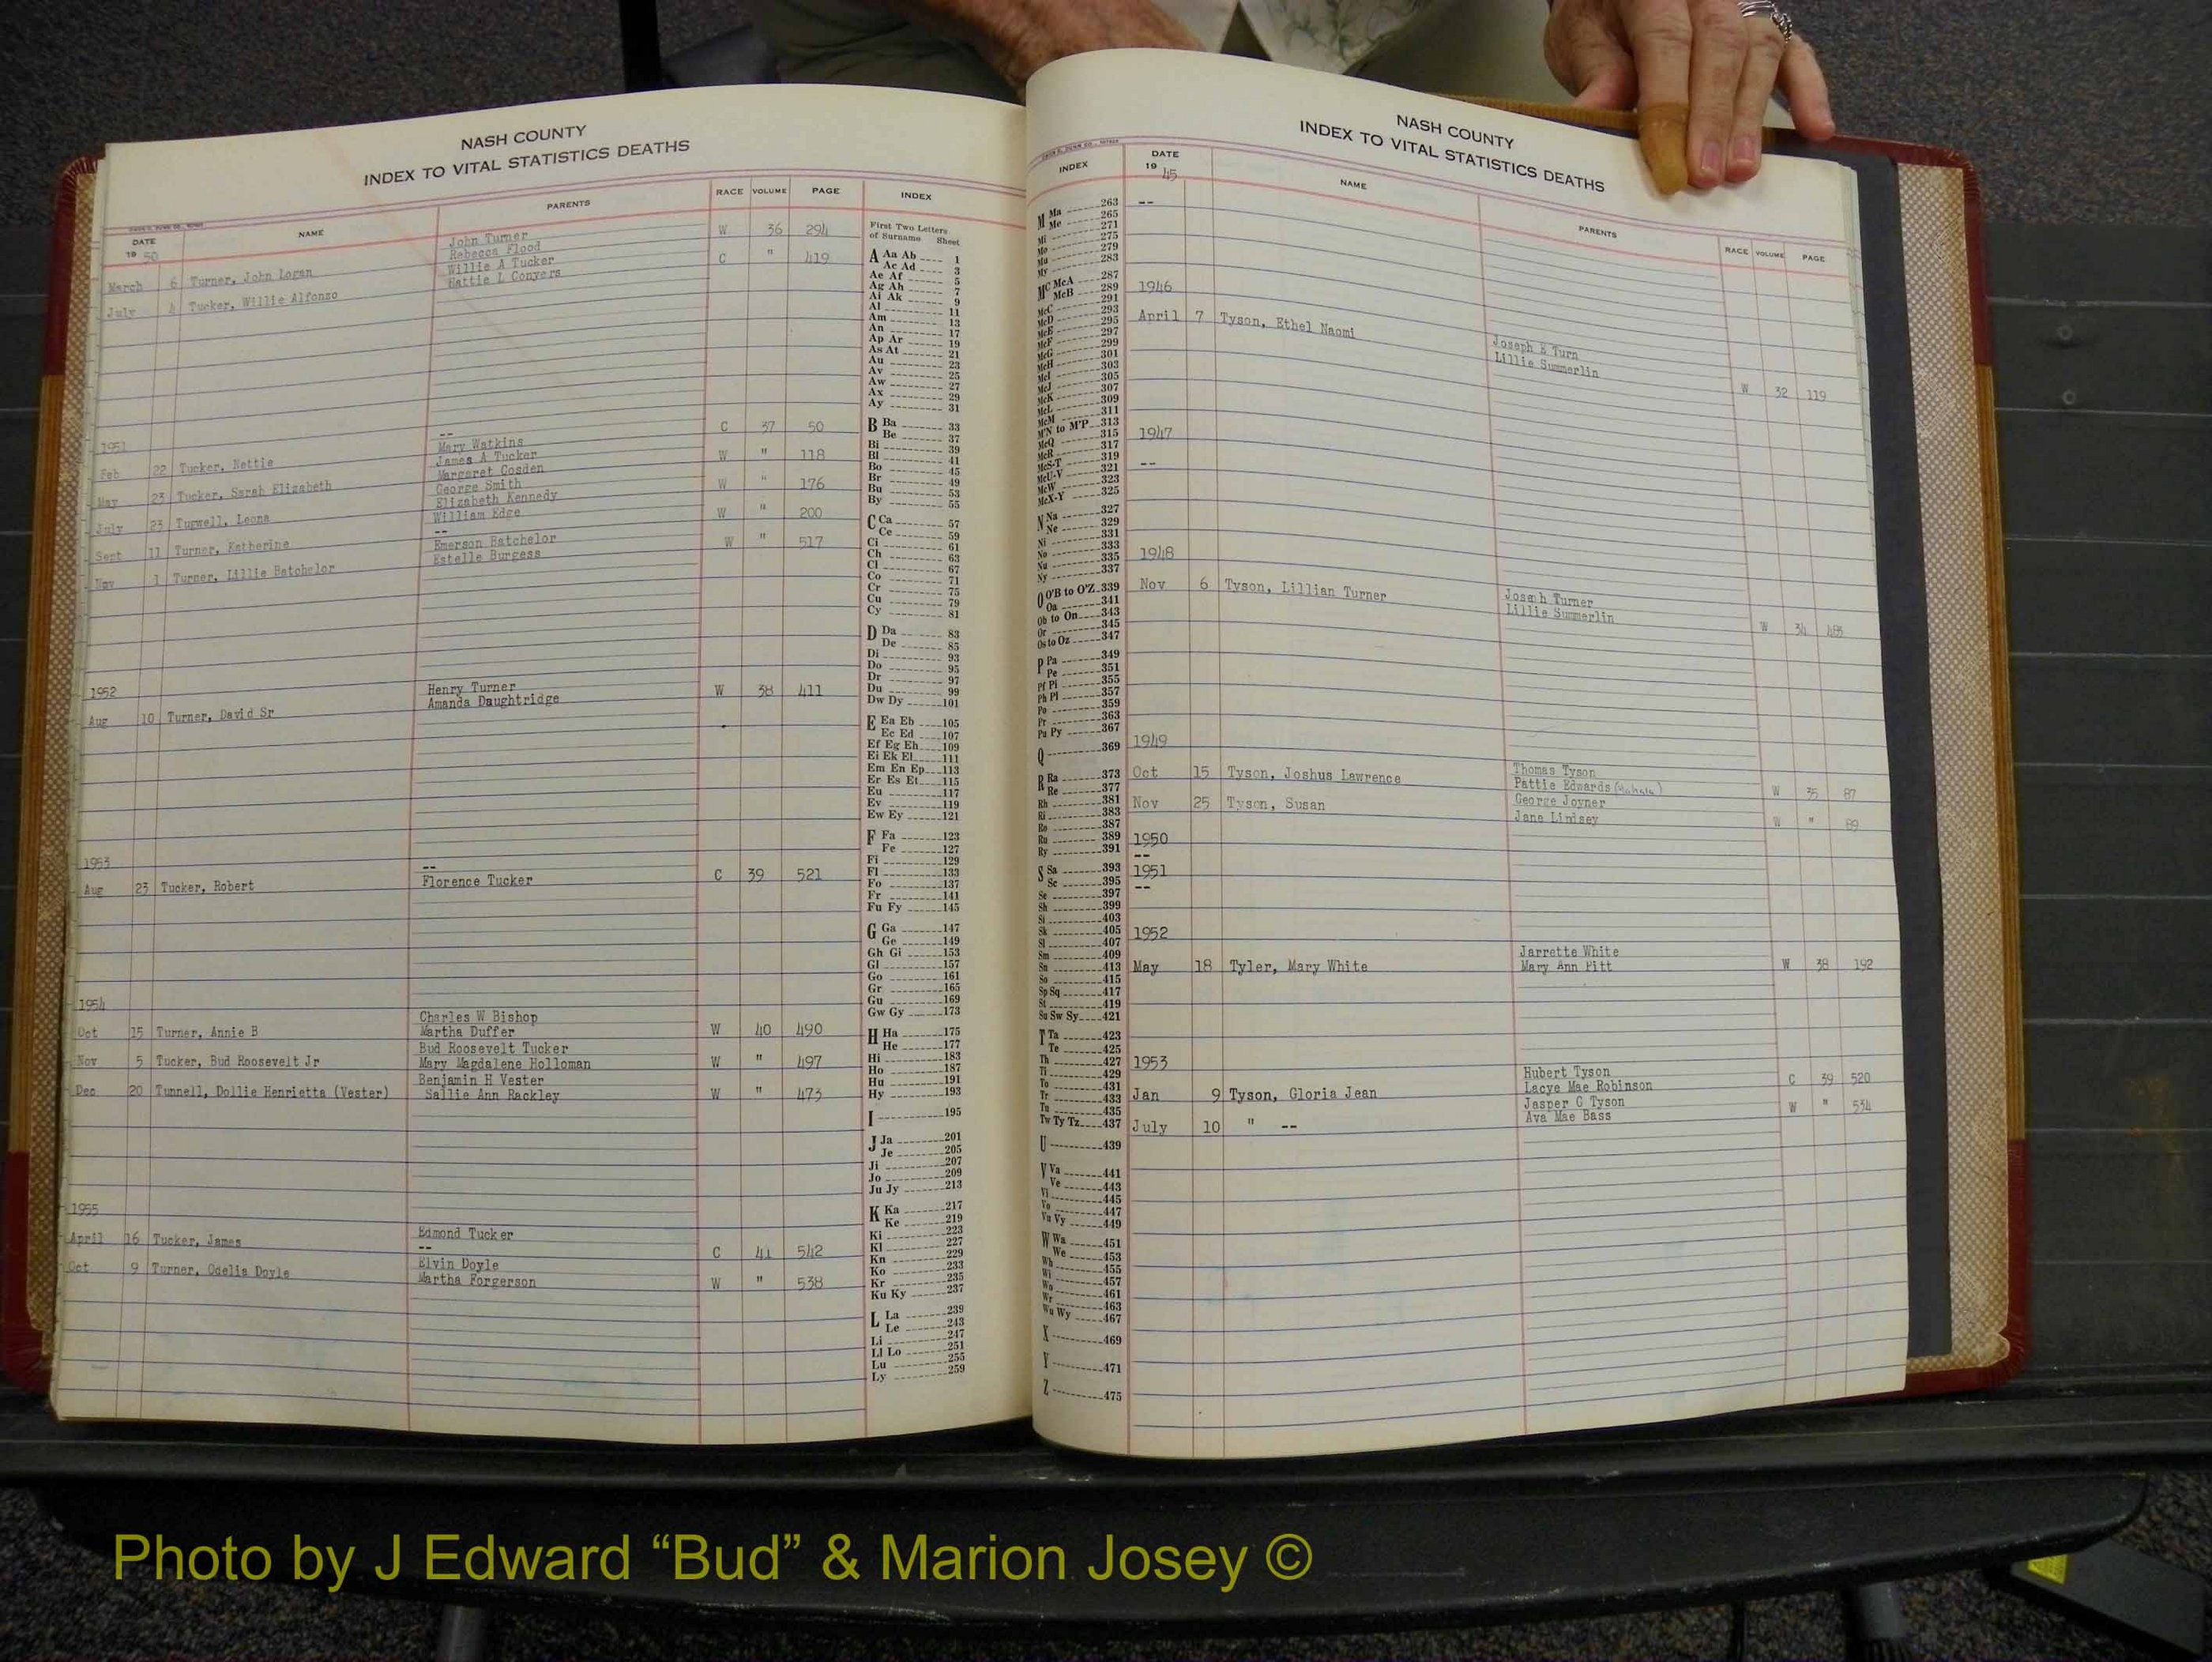 NASH COUNTY
INDEX TO VITAL STATISTICS DEATHS
DATE NAME PARENTS RACE VOLUME PAGE INDEX
19 50
March 6 Turner, John Logan John Turner W 36 294
Rebecca Flood
July 4 Tucker, Willie Alfonzo Willie A Tucker C " 419
Hattie L Conyers
1951
Feb 22 Tucker, Nettie -- C 37 50
Mary Watkins
May 23 Tucker, Sarah Elizabeth James A Tucker W " 118
Margaret Cosden
July 23 Tugwell, Leona George Smith W " 176
Elizabeth Kennedy
Sept 11 Turner, Katherine William Edge W " 200
--
Nov 1 Turner, Lillie Batchelor Emerson Batchelor W " 517
Estelle Burgess
1952
Aug 10 Turner, David Sr Henry Turner W 38 411
Amanda Daughtridge
1953
Aug 23 Tucker, Robert -- C 39 521
Florence Tucker
1954
Oct 15 Turner, Annie B Charles W Bishop W 40 490
Martha Duffer
Nov 5 Tucker, Bud Roosevelt Jr Bud Roosevelt Tucker W " 497
Mary Magdalene Holloman
Dec 20 Tunnell, Dollie Henrietta (Vester) Benjamin H Vester W " 473
Sallie Ann Rackley
1955
April 16 Tucker, James Edmond Tucker C 41 542
--
Oct 9 Turner, Odelia Doyle Elvin Doyle W " 538
Martha Forgerson
First Two Letters
of Surname Sheet
A Aa Ab 1
Ac Ad 3
Ae Af 5
Ag Ah 7
Ai Ak 9
Al 11
Am 13
An 17
Ap Ar 19
As At 21
Au 23
Av 25
Aw 27
Ax 29
Ay 31
B Ba 33
Be 37
Bi 39
Bl 41
Bo 45
Br 49
Bu 53
By 55
C Ca 57
Ce 59
Ci 61
Ch 63
Cl 67
Co 71
Cr 75
Cu 79
Cy 81
D Da 83
De 85
Di 93
Do 95
Dr 97
Du 99
Dw Dy 101
E Ea Eb 105
Ec Ed 107
Ef Eg Eh 109
Ei Ek El 111
Em En Ep 113
Er Es Et 115
Eu 117
Ev 119
Ew Ey 121
F Fa 123
Fe 127
Fi 129
Fl 133
Fo 137
Fr 141
Fu Fy 145
G Ga 147
Ge 149
Gh Gi 153
Gl 157
Go 161
Gr 165
Gu 169
Gw Gy 173
H Ha 175
He 177
Hi 183
Ho 187
Hu 191
Hy 193
I 195
J Ja 201
Je 205
Ji 207
Jo 209
Ju Jy 213
K Ka 217
Ke 219
Ki 223
Kl 227
Kn 229
Ko 233
Kr 235
Ku Ky 237
L La 239
Le 243
Li 247
Ll Lo 251
Lu 255
Ly 259
NASH COUNTY
INDEX TO VITAL STATISTICS DEATHS
INDEX DATE NAME PARENTS RACE VOLUME PAGE
19 45
M Ma 263
Me 265
Mi 271
Mo 275
Mu 279
My 283
Mc McA 287
McB 289
McC 291
McD 293
McE 295
McF 297
McG 299
McH 301
McI 303
McJ 305
McK 307
McL 309
McM 311
M'N to M'P 313
McQ 315
McR 317
McS-T 319
McU-V 321
McW 323
McX-Y 325
N Na 327
Ne 329
Ni 331
No 333
Nu 335
Ny 337
O O'B to O'Z 339
Oa 341
Ob to On 343
Or 345
Os to Oz 347
P Pa 349
Pe 351
Pf Pi 355
Ph Pl 357
Po 359
Pr 363
Pu Py 367
Q 369
R Ra 373
Re 377
Rh 381
Ri 383
Ro 387
Ru 389
Ry 391
S Sa 393
Sc 395
Se 397
Sh 399
Si 403
Sk 405
Sl 407
Sm 409
Sn 413
So 415
Sp Sq 417
St 419
Su Sw Sy 421
T Ta 423
Te 425
Th 427
Ti 429
To 431
Tr 433
Tu 435
Tw Ty Tz 437
U 439
V Va 441
Ve 443
Vi 445
Vo 447
Vu Vy 449
W Wa 451
We 453
Wh 455
Wi 457
Wo 461
Wr 463
Wu Wy 467
X 469
Y 471
Z 475
--
1946
April 7 Tyson, Ethel Naomi Joseph E Turn W 32 119
Lillie Summerlin
1947
--
1948
Nov 6 Tyson, Lillian Turner Joseph Turner W 34 483
Lillie Summerlin
1949
Oct 15 Tyson, Joshus Lawrence Thomas Tyson W 35 87
Pattie Edwards
Nov 25 Tyson, Susan George Joyner W " 89
Jane Lindsey
1950
--
1951
--
1952
May 18 Tyler, Mary White Jarrette White W 38 192
Mary Ann Pitt
1953
Jan 9 Tyson, Gloria Jean Hubert Tyson C 39 520
Lacye Mae Robinson
July 10 " -- Jasper G Tyson W " 534
Ava Mae Bass
Photo by J Edward “Bud” & Marion Josey ©